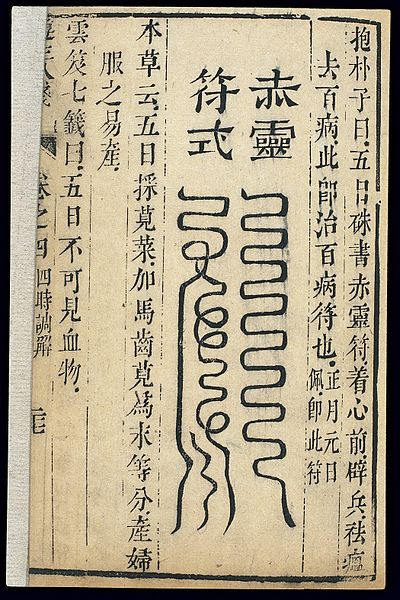 抱朴子曰.五日硃書赤靈符着心前.辟兵祛瘟
去百病.此卽治百病符也.正月元日
佩.卽此符
赤靈
符式
本草云.五日採莧菜.加馬齒莧爲末等分.產婦
服之易產.
雲笈七籤曰.五日不可見血物.
卷之四 四時調解